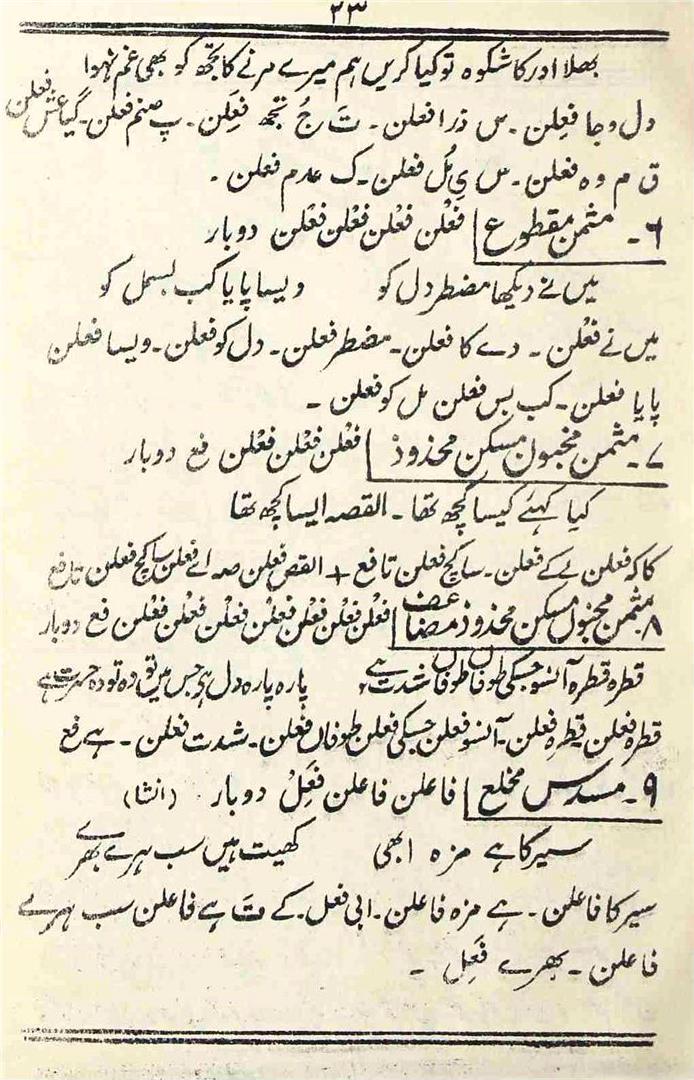 ۲۳
بھلا اور کا شکوہ تو کیا کریں ہم میرے مرنے کا تجھ کو بھی غم نہوا
دل وجا فعِلن ۔ س ذرا فعلن ۔ تَ جُ تجھ فعِلن ۔ پ صنم فعلن ۔ گیا عش فعلن
ق م وہ فعلن ۔ س یِ مُل فعلن ۔ ک عدم فعلن ۔
۶ ۔ مثمن مقطوع فعْلن فعْلن فعْلن فعْلن دوبار
میں نے دیکھا مضطر دل کو ویسا پایا کب بسمل کو
میں نے فعْلن ۔ دے کا فعلن ۔ مضطر فعلن ۔ دل کو فعلن ۔ ویسا فعلن
پایا فعلن ۔ کب بس فعلن مل کو فعلن ۔
۷ ۔ مثمن مخبون مسکن محذوذ فعْلن فعْلن فعْلن فع دوبار
کیا کہئے کیسا کچھ تھا ۔ القصہ ایسا کچھ تھا
کا کہ فعلن یے کے فعلن ۔ سا کچ فعلن تا فع + القص فعلن صہ اے فعلن سا کچ فعلن تا فع
۸ ۔ مثمن مخبول مسکن محذوذ مضاعف فعْلن فعْلن فعْلن فعْلن فعْلن فعْلن فعْلن فع دوبار
قطرہ قطرہ آنسو جسکی طوفاں طوفاں شدت ہے پارہ پارہ دل ہے جس میں تودہ تودہ حسرت ہے
قطرہ فعلن قطرہ فعلن ۔ آنسو فعلن جسکی فعلن طوفاں فعلن ۔ شدت فعلن ۔ ہے فع
۹ ۔ مسدس مخلع فاعلن فاعلن فَعِلْ دوبار (انشا)
سیر کا ہے مزہ ابھی کھیت ہیں سب ہرے بھرے
سیر کا فاعلن ۔ ہے مزہ فاعلن ۔ ابی فعل ۔ کے تَ ہے فاعلن سب ہرے
فاعلن ۔ بھرے فَعِل ۔